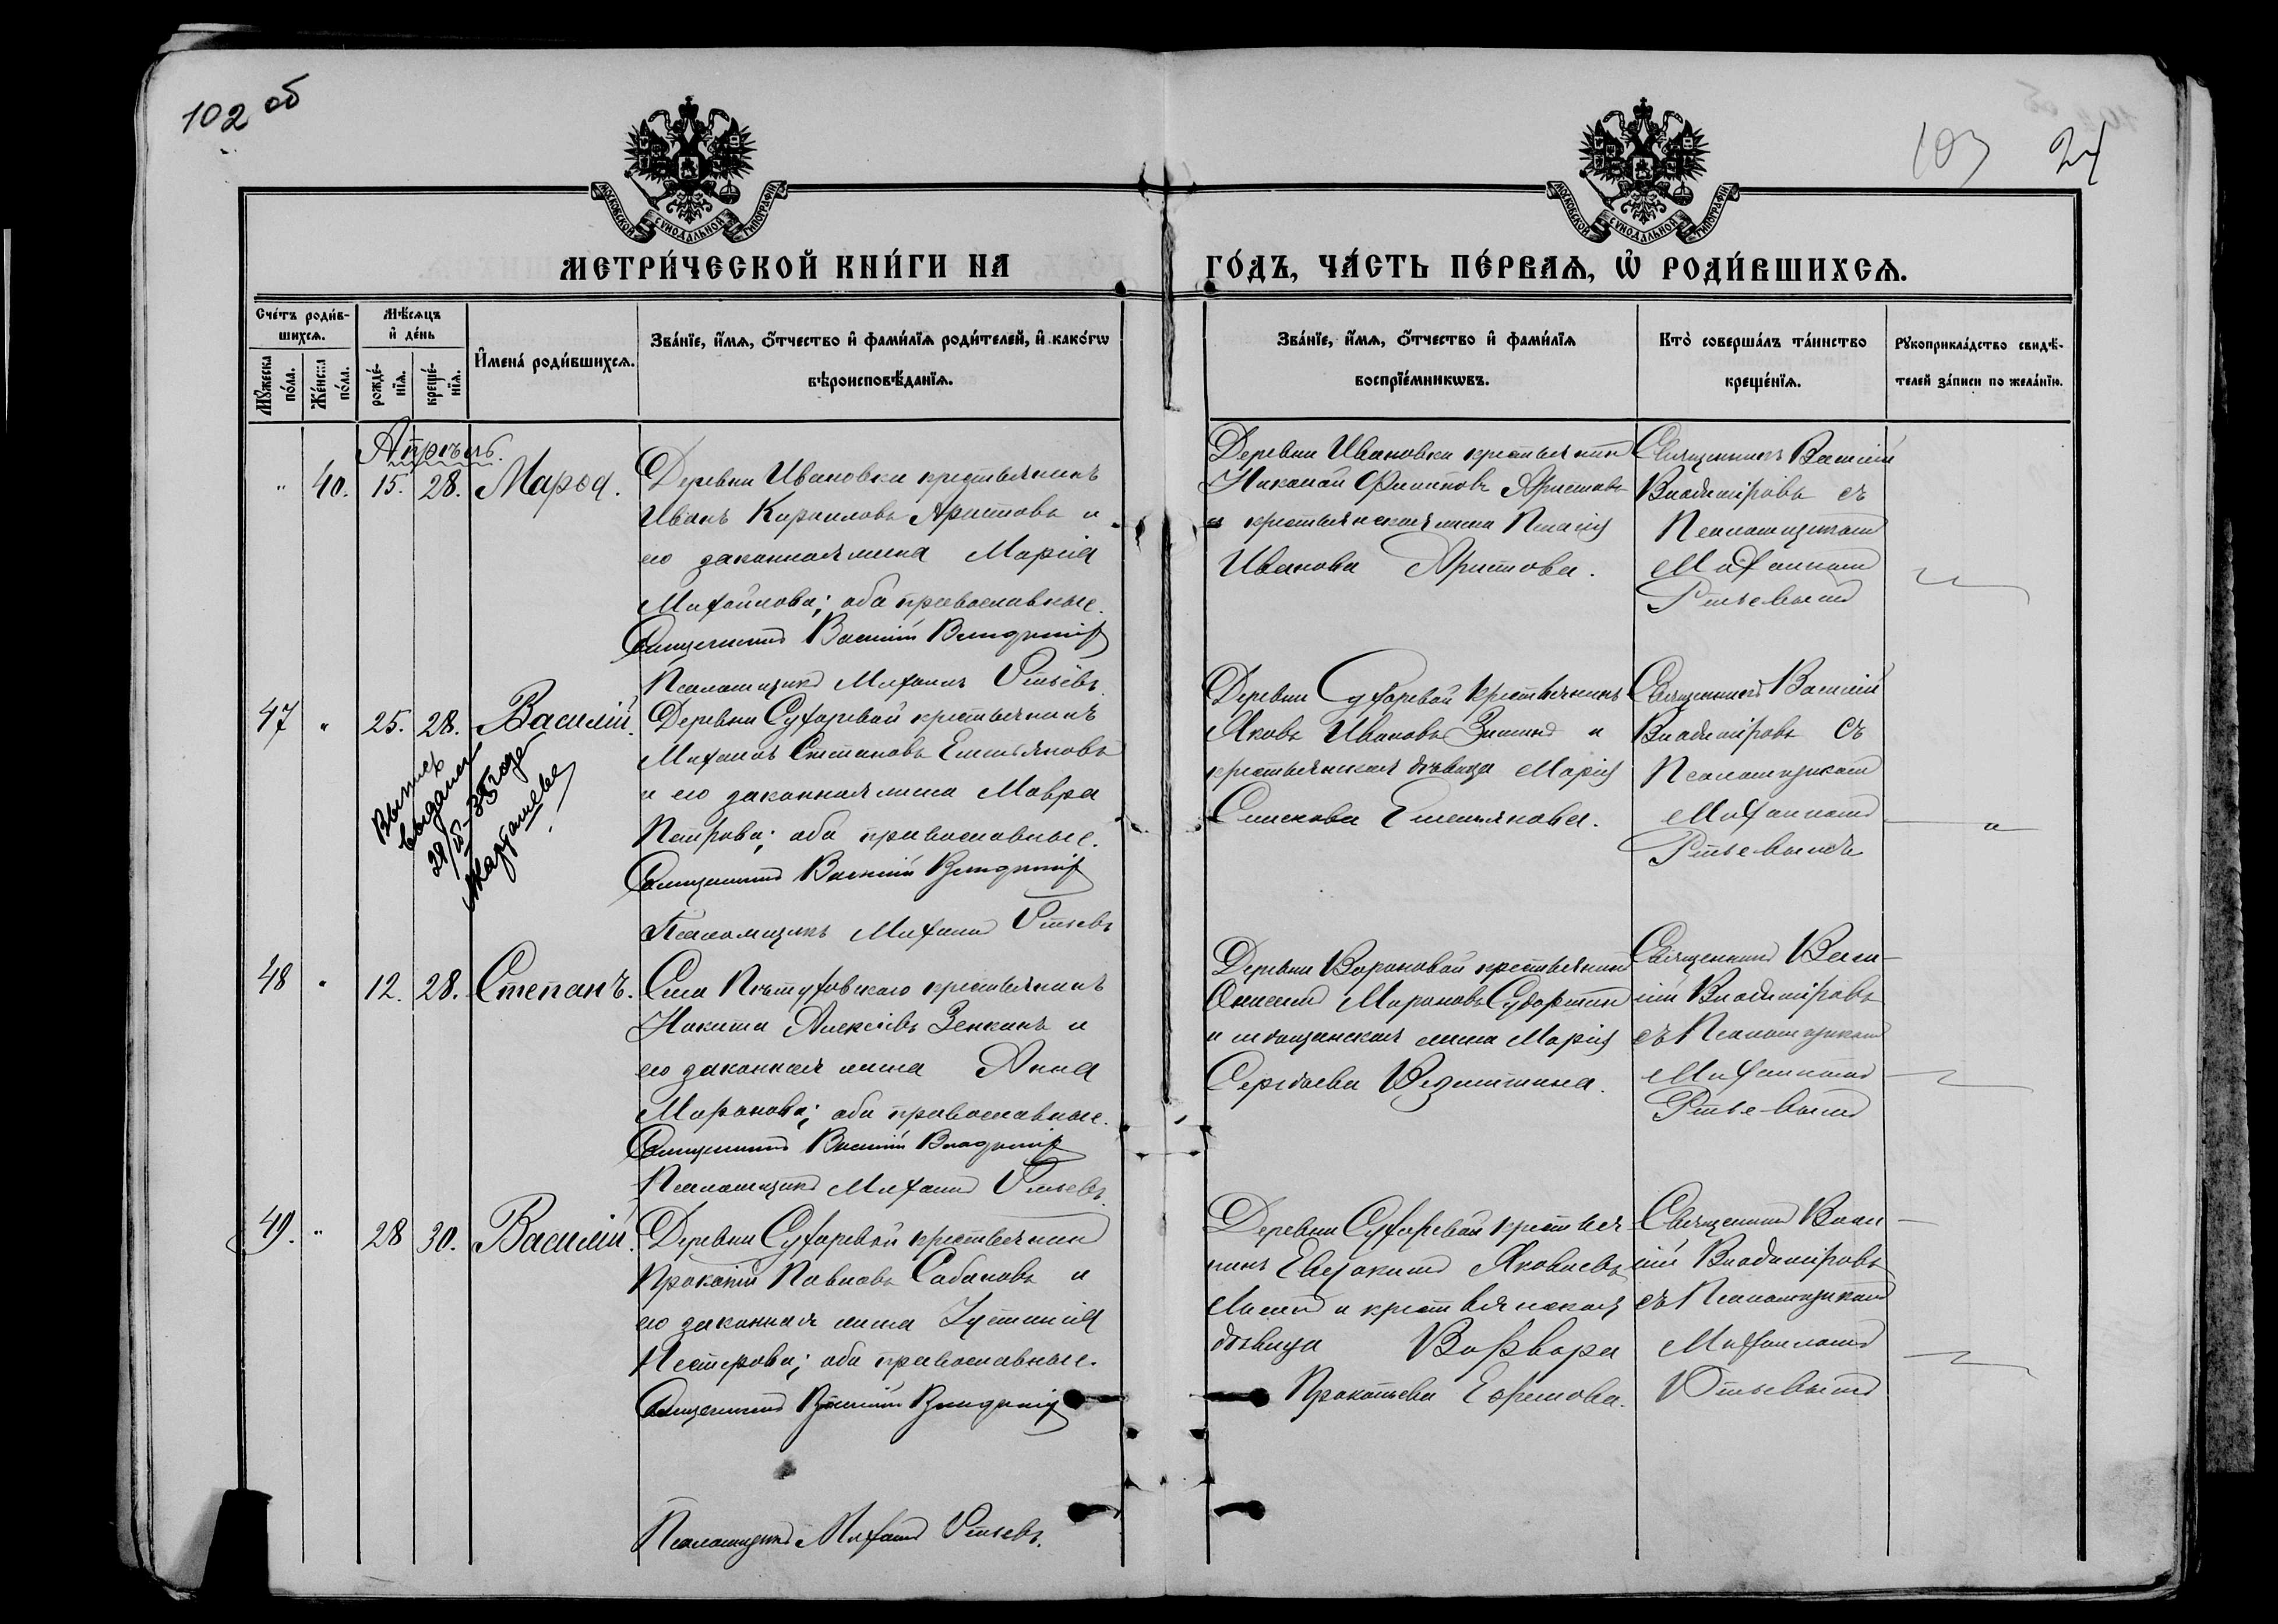 102 об
103 24
МОСКОВСКОЙ СѴНОДАЛЬНОЙ ТИПОГРАФІИ
МОСКОВСКОЙ СѴНОДАЛЬНОЙ ТИПОГРАФІИ
МЕТРИ́ЧЕСКОЙ КНИ́ГИ НА
ГО́ДЪ, ЧА́СТЬ ПЕ́РВАѦ, Ѽ РОДИ́ВШИХСѦ.
Сче́тъ роди́в-
шихсѧ.
Мѣ́сѧцъ
и҆ де́нь
Мꙋ́жеска
по́ла.
Же́нска
по́ла.
рожде́-
нїѧ.
креще́-
нїѧ.
И҆мена̀ роди́вшихсѧ.
Зва́нїе, и҆́мѧ, ѻ҆́тчество и҆ фами́лїѧ роди́телей, и҆ како́гѡ
вѣроисповѣ́данїѧ.
Зва́нїе, и҆́мѧ, ѻ҆́тчество и҆ фами́лїѧ
воспрїе́мникѡвъ.
Кто̀ соверша́лъ та́инство
креще́нїѧ.
Рꙋкоприкла́дство свидѣ́-
телей за́писи по жела́нїю.
Апрѣль.
" 40. 15. 28. Марѳа.
Деревни Ивановки крестьянинъ
Иванъ Кириловъ Аристовъ и
его законная жена Марія
Михайлова; оба православные.
Священникъ Василій Владиміровъ
Псаломщикъ Михаилъ
Деревни Ивановки крестьянинъ
Николай Филиповъ Аристовъ
и крестьянская жена
Иванова Аристова.
Священникъ Василій
Владиміровъ съ
Псаломщикомъ
Михаиломъ
47 " 25. 28. Василій.
Выпись
выдана
Деревни Сухаревой крестьянинъ
Михаилъ Степановъ Емельяновъ
и его законная жена Мавра
Петрова; оба православные.
Священникъ Василій Владиміровъ
Псаломщикъ Михаилъ
Деревни Сухаревой крестьянинъ
Яковъ Ивановъ Зиминъ и
крестьянская дѣвица Марія
Емельянова.
Священникъ Василій
Владиміровъ съ
Псаломщикомъ
Михаиломъ
48 " 12. 28. Степанъ.
Села Пѣтуховскаго крестьянинъ
Никита Алексѣевъ Зенкинъ и
его законная жена Анна
Миронова; оба православные.
Священникъ Василій Владиміровъ
Псаломщикъ Михаилъ
Деревни Вороновой крестьянинъ
Мироновъ
и мѣщанская жена Марія
Сергѣева
Священникъ Васи-
лій Владиміровъ
съ Псаломщикомъ
Михаиломъ
49. " 28 30. Василій.
Деревни Сухаревой крестьянинъ
Прокопій Павловъ Сабановъ и
его законная жена Іустинія
Нестерова; оба православные.
Священникъ Василій Владиміровъ
Псаломщикъ Михаилъ
Деревни Сухаревой крестья
нинъ Евдокимъ Яковлевъ
и крестьянская
дѣвица Варвара
Прокопьева Ефремова.
Священникъ Васи
лій Владиміровъ
съ Псаломщикомъ
Михаиломъ